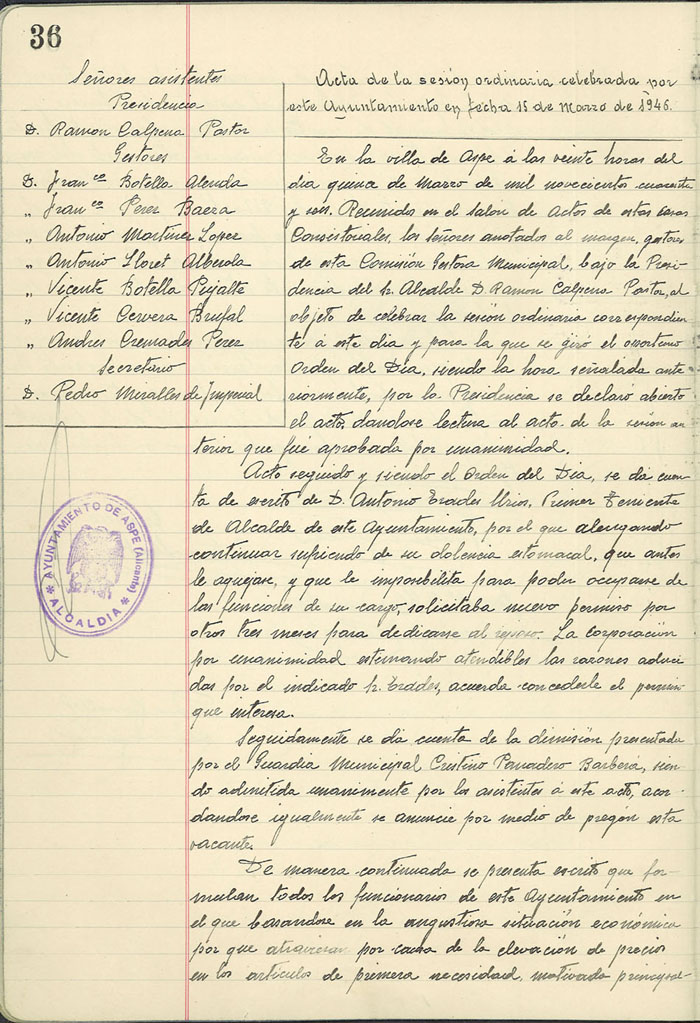 36
Señores asistentes
Presidencia
D. Ramon Calpena Pastor
Gestores
D. Franco Botella Alenda
„ Franco Perez Baeza
„ Antonio Martinez Lopez
„ Antonio Lloret Alberola
„ Vicente Botella Pujalte
„ Vicente Cervera Brufal
„ Andres Cremades Perez
Secretario
D. Pedro Miralles de Imperial
AYUNTAMIENTO DE ASPE (Alicante)
* ALCALDIA *
Acta de la sesión ordinaria celebrada por
este Ayuntamiento en fecha 15 de Marzo de 1946.
En la villa de Aspe á las veinte horas del
dia quince de Marzo de mil novecientos cuarenta
y seis. Reunidos en el Salon de Actos de estas Casas
Consistoriales, los señores anotados al margen, gestores
de esta Comisión Gestora Municipal, bajo la Presi-
dencia del Sr. Alcalde D. Ramon Calpena Pastor, al
objeto de celebrar la sesión ordinaria correspondien-
te á este dia y para la que se giró el oportuno
Orden del Dia, siendo la hora señalada ante-
riormente, por la Presidencia se declaró abierto
el acto, dandose lectura al acto de la sesion an-
terior que fué aprobada por unanimidad.
Acto seguido y siendo el Orden del Dia, se da cuen-
ta de escrito de D. Antonio Erades Urios, Primer Teniente
de Alcalde de este Ayuntamiento, por el que alegando
continuar sufriendo de su dolencia estomacal, que antes
le aquejase, y que le imposibilita para poder ocuparse de
las funciones de su cargo, solicitaba nuevo permiso por
otros tres meses para dedicarse al reposo. La corporación
por unanimidad estimando atendibles las razones aduci-
das por el indicado Sr. Erades, acuerda concederle el permiso
que interesa.
Seguidamente se da cuenta de la dimisión presentada
por el Guardia Municipal Cristino Panadero Barberá, sien-
do admitida unanimente por los asistentes á este acto, acor-
dandose igualmente se anuncie por medio de pregón esta
vacante.
De manera continuada se presenta escrito que for-
mulan todos los funcionarios de este Ayuntamiento en
el que basandose en la angustiosa situación económica
por que atraviesan por causa de la elevación de precios
en los articulos de primera necesidad, motivada principal-